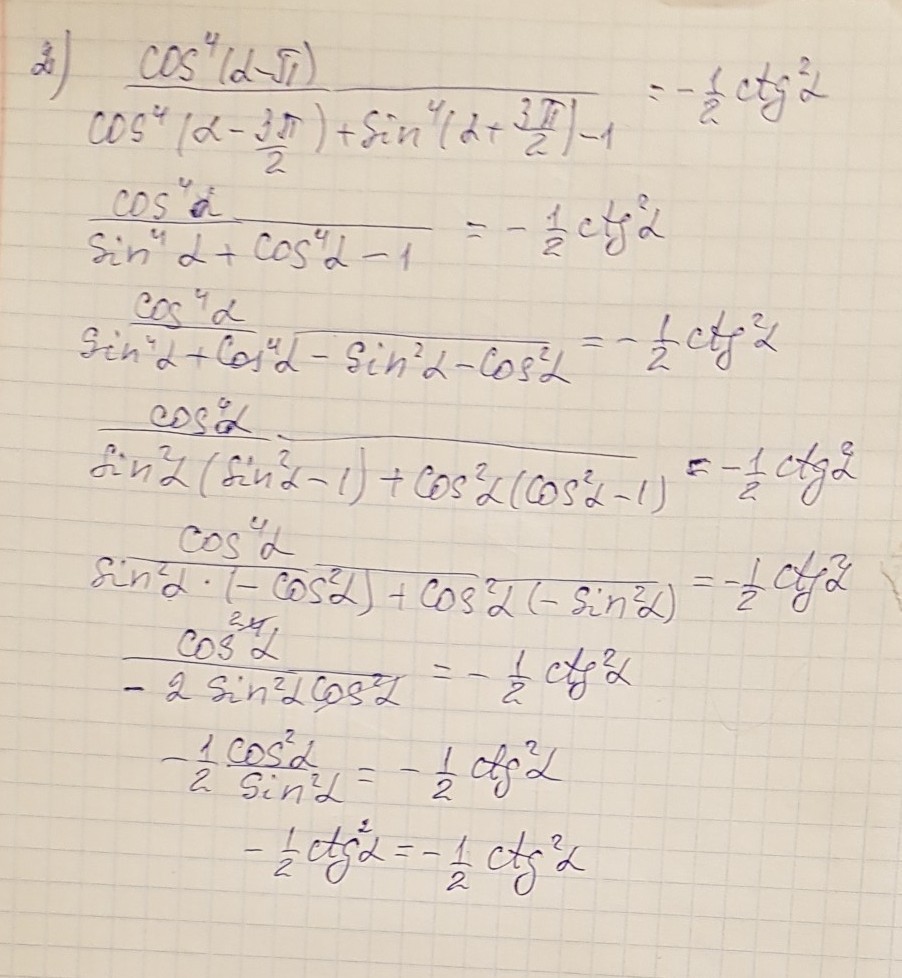 2) cos⁴(α-π) / cos⁴(α - 3π/2) + sin⁴(α + 3π/2) - 1 = - 1/2 ctg²α
cos⁴α / sin⁴α + cos⁴α - 1 = - 1/2 ctg²α
cos⁴α / sin⁴α + cos⁴α - sin²α - cos²α = - 1/2 ctg²α
cos⁴α / sin²α (sin²α - 1) + cos²α (cos²α - 1) = - 1/2 ctg²α
cos⁴α / sin²α · (- cos²α) + cos²α (- sin²α) = - 1/2 ctg²α
cos²⁴α / - 2 sin²α cos²α = - 1/2 ctg²α
- 1/2 cos²α / sin²α = - 1/2 ctg²α
- 1/2 ctg²α = - 1/2 ctg²α